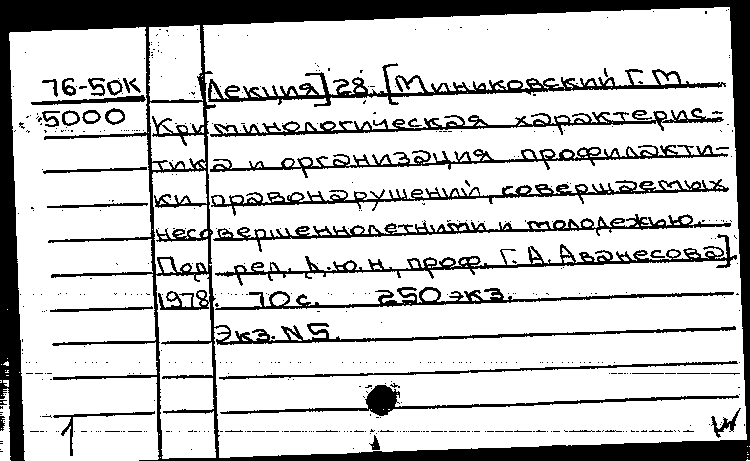 76-50К [Лекция] 28. [Миньковский Г.М.
5000 Криминологическая характерис=
тика и организация профилакти-
ки правонарушений, совершаемых
несовершеннолетними и молодежью.
Под ред. д.ю.н., проф. Г.А. Аванесова].
1978. 70 с. 250 экз.
Экз. N5.
1